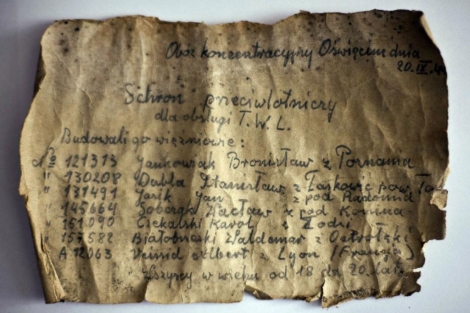 Obóz koncentracyjny Oświęcim dnia
20.IX.4
Schron przeciwlotniczy
dla obsługi T.W.L.
Budowali go więźniowie:
No 121313 Jankowiak Bronisław z Poznania
" 130208 Dubla Stanisław z Łaskowic pow.
" 131491 Jasik Jan z pod Radomia
" 145664 Sobczak Wacław z pod Konina
" 151090 Czekalski Karol z Łodzi
" 157582 Białobrzeski Waldemar z Ostrołęki
A 12063 Veinid Albert z Lyon (Francja)
Wszyscy w wieku od 18 do 20 lat.